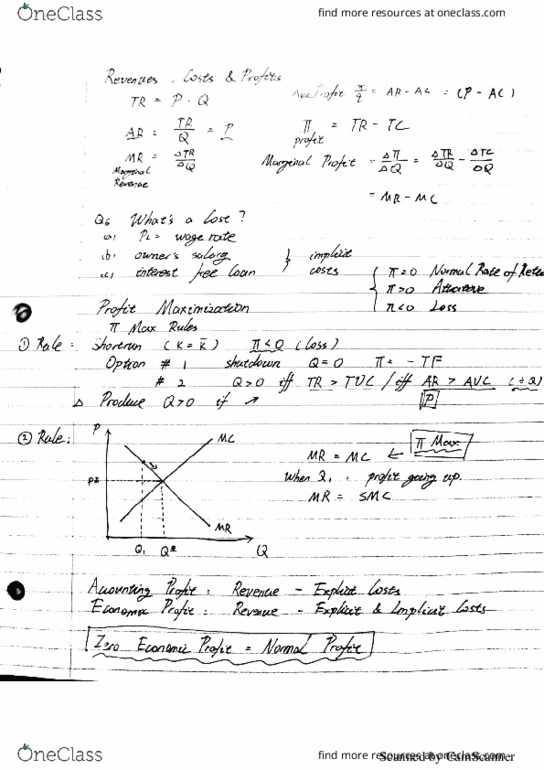 OneClass
find more resources at oneclass.com
Revenues, Costs & Profits
TR = P · Q
Profit π/q = AR - AC = (P - AC)
AR = TR/Q = P
π = TR - TC
profit
MR = ΔTR/ΔQ
Marginal Revenue
Marginal Profit = Δπ/ΔQ = ΔTR/ΔQ - ΔTC/ΔQ
= MR - MC
Q6 What's a Cost?
(a) PL = wage rate
(b) owner's salary
(c) interest free loan
} implicit costs
π=0 Normal Rate of
π>0
π<0 Loss
Profit Maximization
π Max Rules
① Rule: Shortrun (K = K̄) (Loss)
Option # 1 shutdown Q=0 π = - TF
# 2 Q>0 iff TR > TVC / iff AR > AVC (÷Q)
P
Δ Produce Q>0 if ↗
② Rule:
P
MC
P*
MR
Q1 Q* Q
MR = MC ← π Max
When Q1 : profit going up.
MR = SMC
Accounting Profit: Revenue - Explicit Costs
Economic Profit: Revenue - Explicit & Implicit Costs
Zero Economic Profit = Normal Profit
OneClass
find more resources at oneclass.com
Scanned by CamScanner